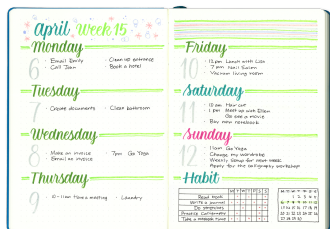 April Week 15
Monday
6
· Email Emily · Clean up entrance
· Call Joan · Book a hotel
Tuesday
7
· Create documents · Clean bathroom
Wednesday
8
· Make an invoice · 7pm Go Yoga
· Email an invoice
Thursday
9
· 10-11am Home meeting · Laundry
Friday
10
· 12pm Lunch with Lola
· 7pm Nail Salon
· Vacuum living room
Saturday
11
· 10am Hair cut
· 1pm Meet up with Ellen
Go see a movie
· Buy new notebook
Sunday
12
· 11am Go Yoga
· Change my wardrobe
· Weekly setup for next week
· Apply for the calligraphy workshop
Habit
M T W T F S S
Read book
Write a journal
Do stretches
Practice Calligraphy
Take a morning